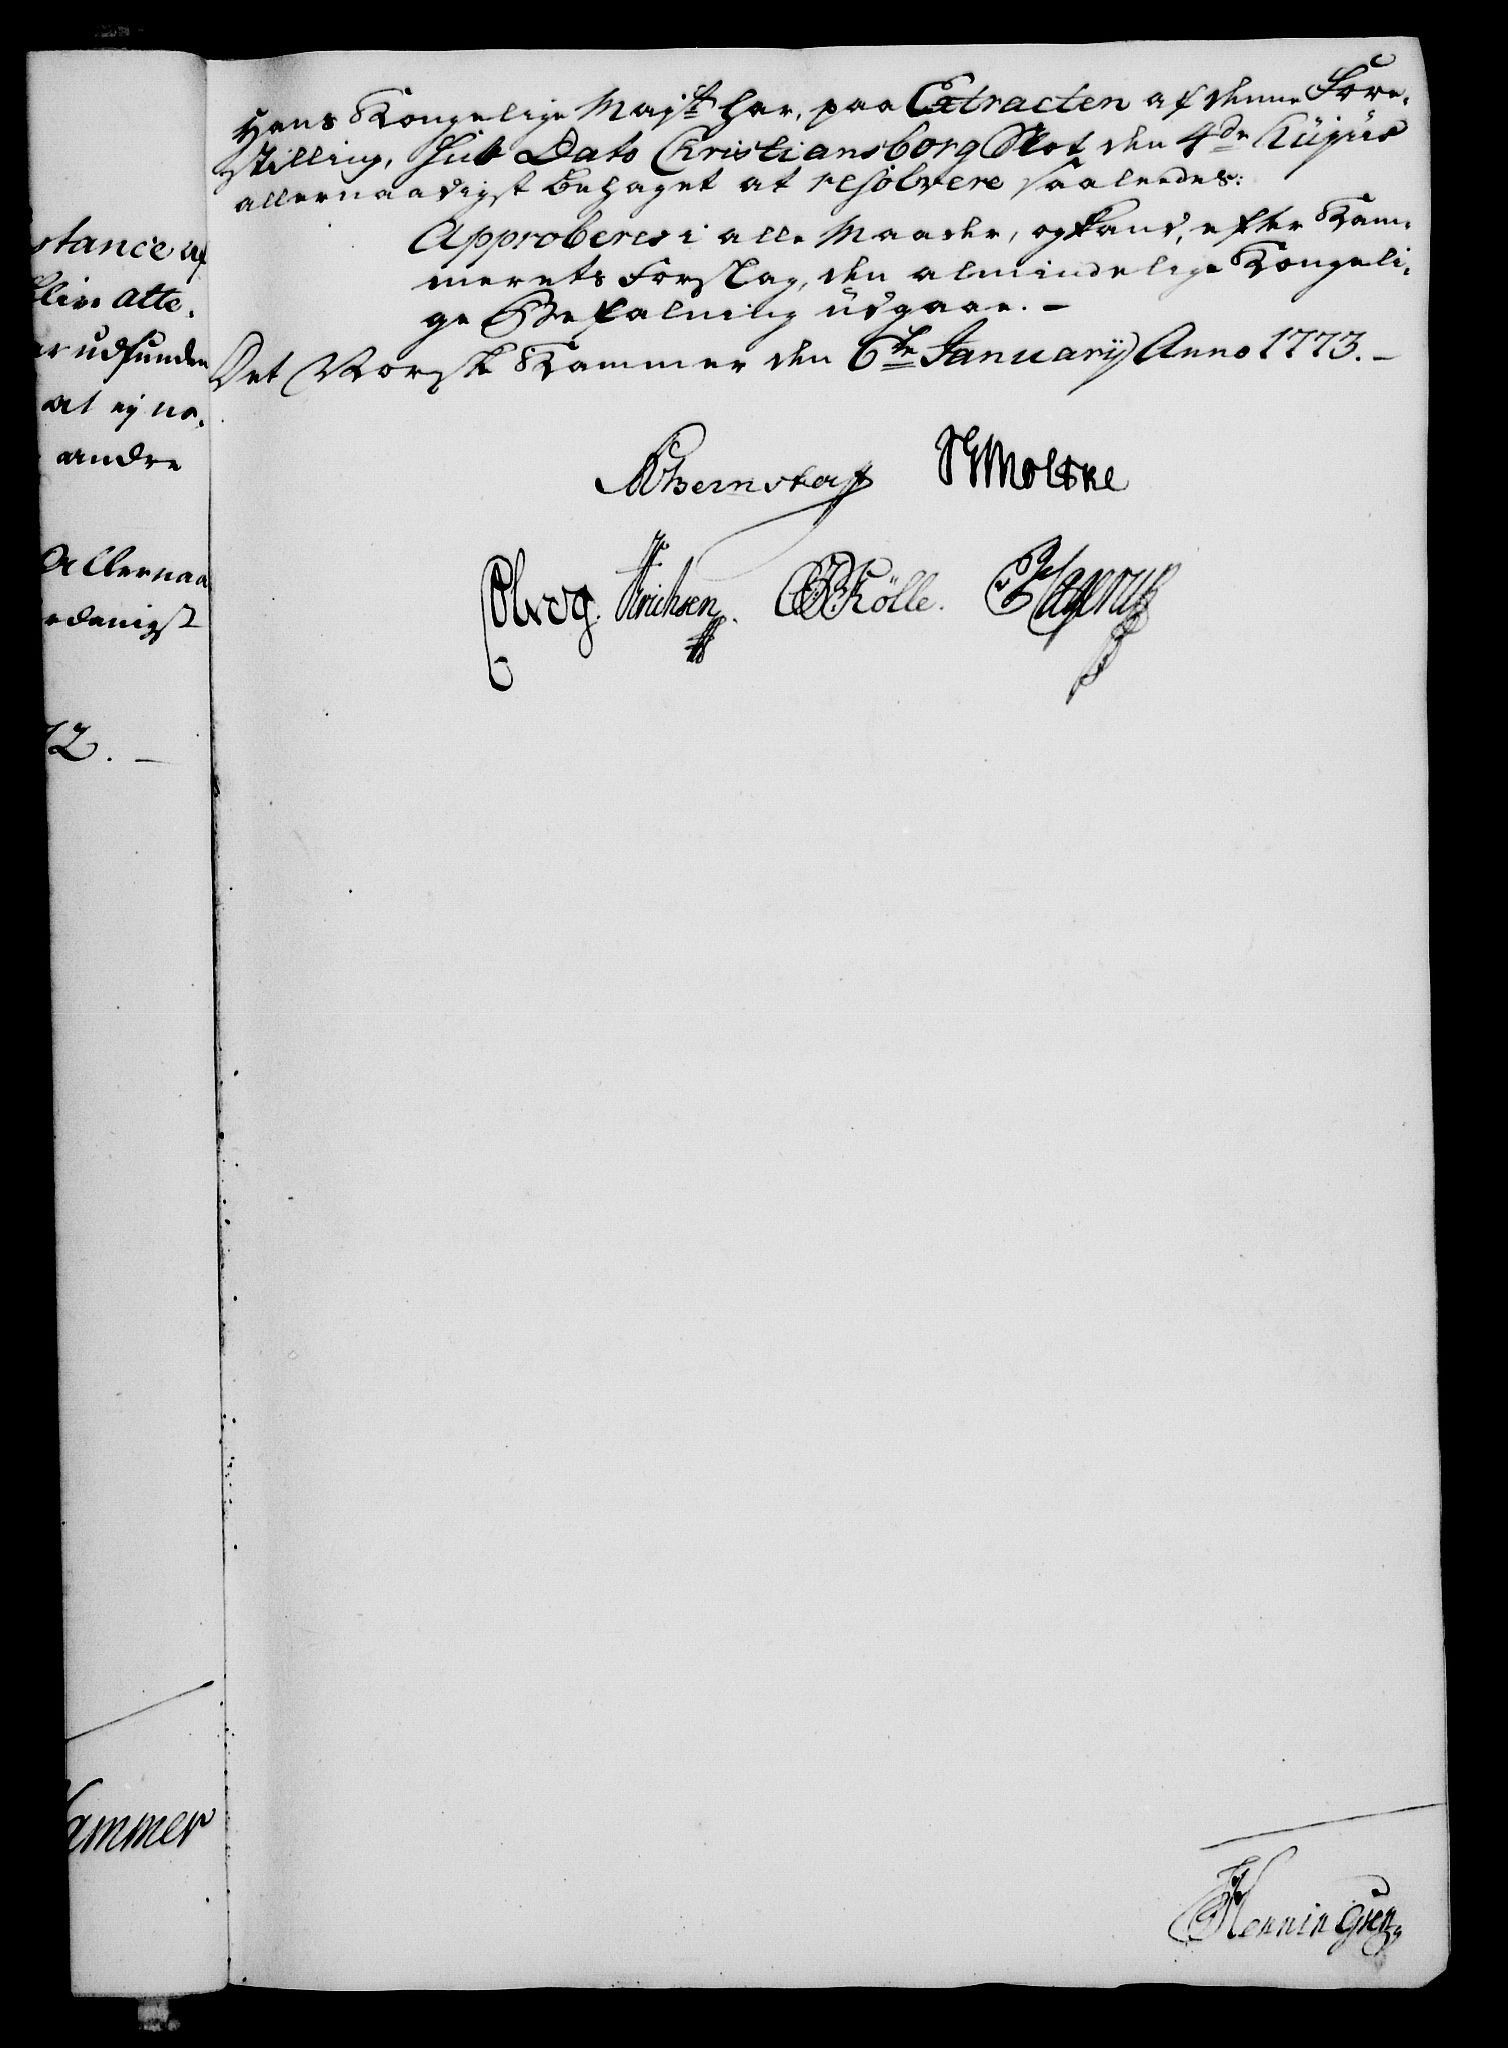 stance af
blive atte.
udfunden
at ej no.
andre
Allernaa
edanigst
72. –
Kammer
Hans Kongelige Mayst: har, paa Extracten af denne Fore,
stilling, sub Dato Christiansborg Slot den 4de hujus
allernaadigst behaget at resolvere saaledes:
Approberes i alle Maader, og kand, efter Kam,
merets Forslag, den almindelige Kongeli,
ge Befalning udgaae. –
Det Norske Kammer den 6te Januarij Anno 1773. –
Bernstaf HMoltke
Erichsen. Kölle. Hagerup
Henningsen